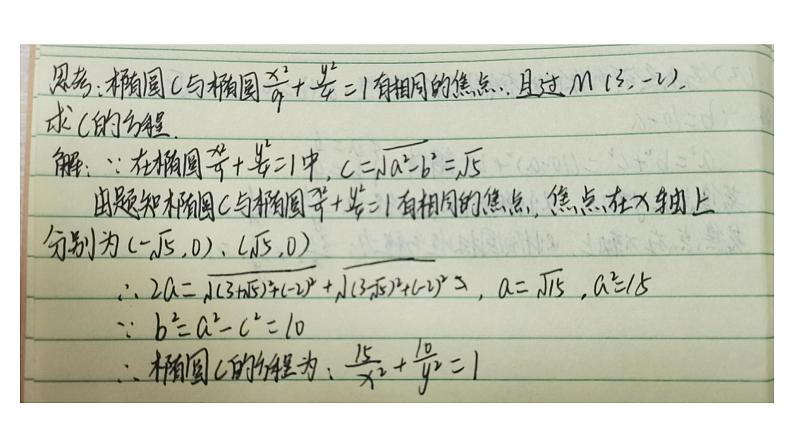 思考:椭圆C与椭圆x²/9+y²/4=1有相同的焦点,且过M(3,-2),
求C的方程.
解:∵在椭圆x²/9+y²/4=1中,c=√(a²-b²)=√5
由题知椭圆C与椭圆x²/9+y²/4=1有相同的焦点,焦点在x轴上
分别为(-√5,0)、(√5,0)
∴2a=√((3+√5)²+(-2)²)+√((3-√5)²+(-2)²), a=√15,a²=15
∵b²=a²-c²=10
∴椭圆C的方程为:15/x²+10/y²=1